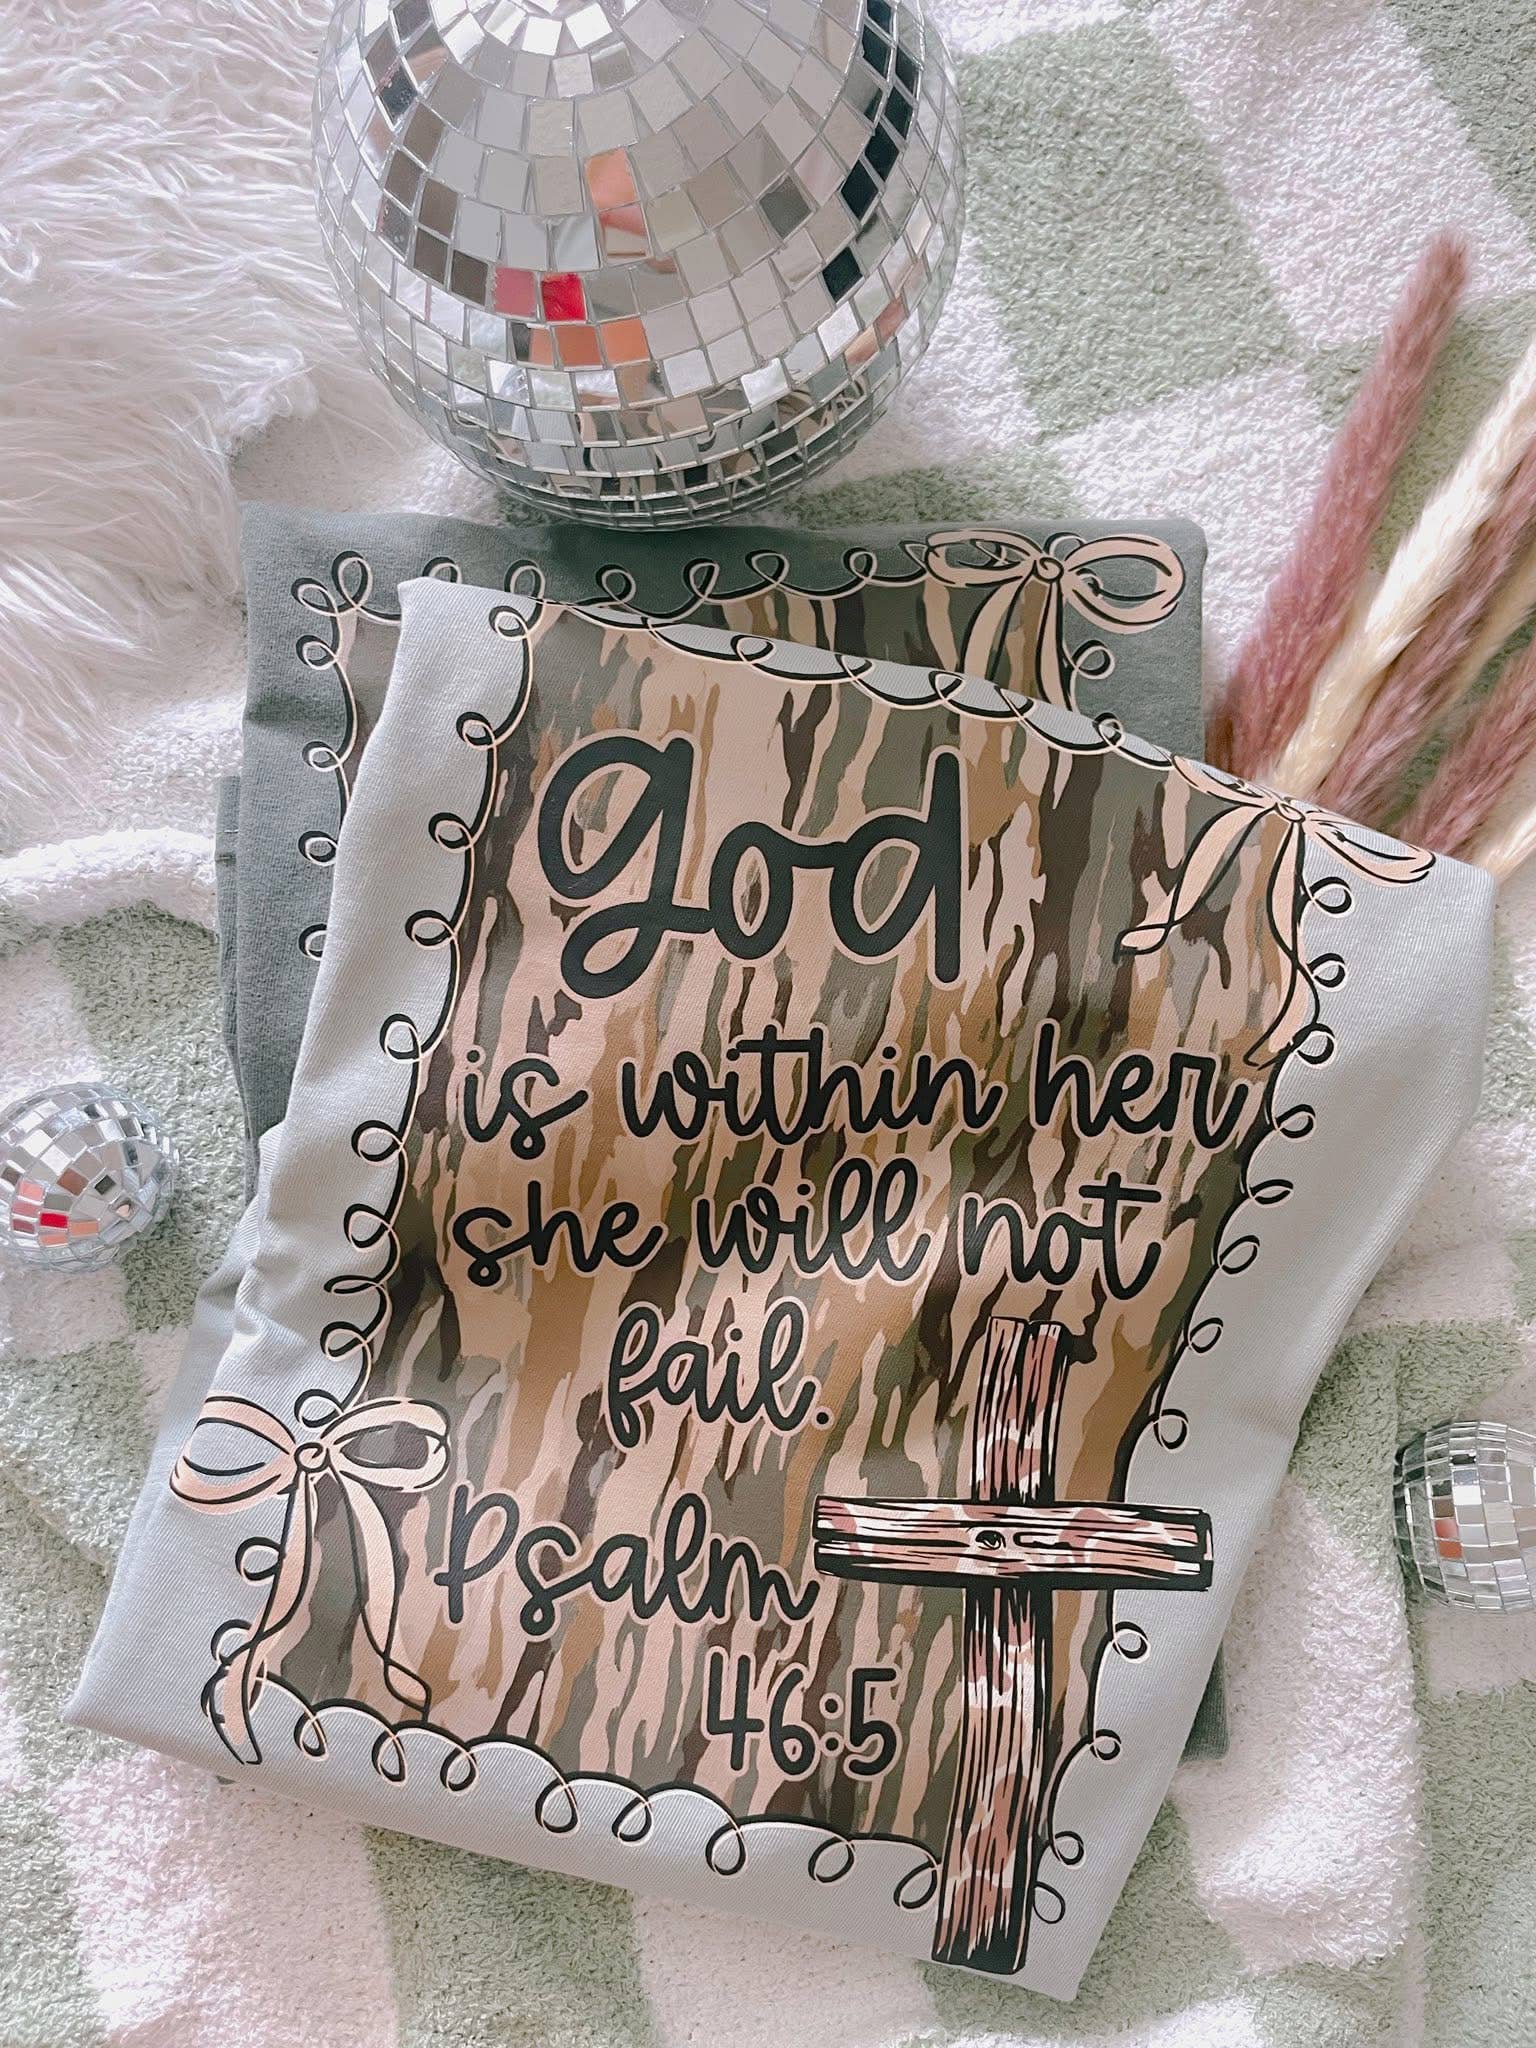 god
is within her
she will not
fail.
Psalm
46:5